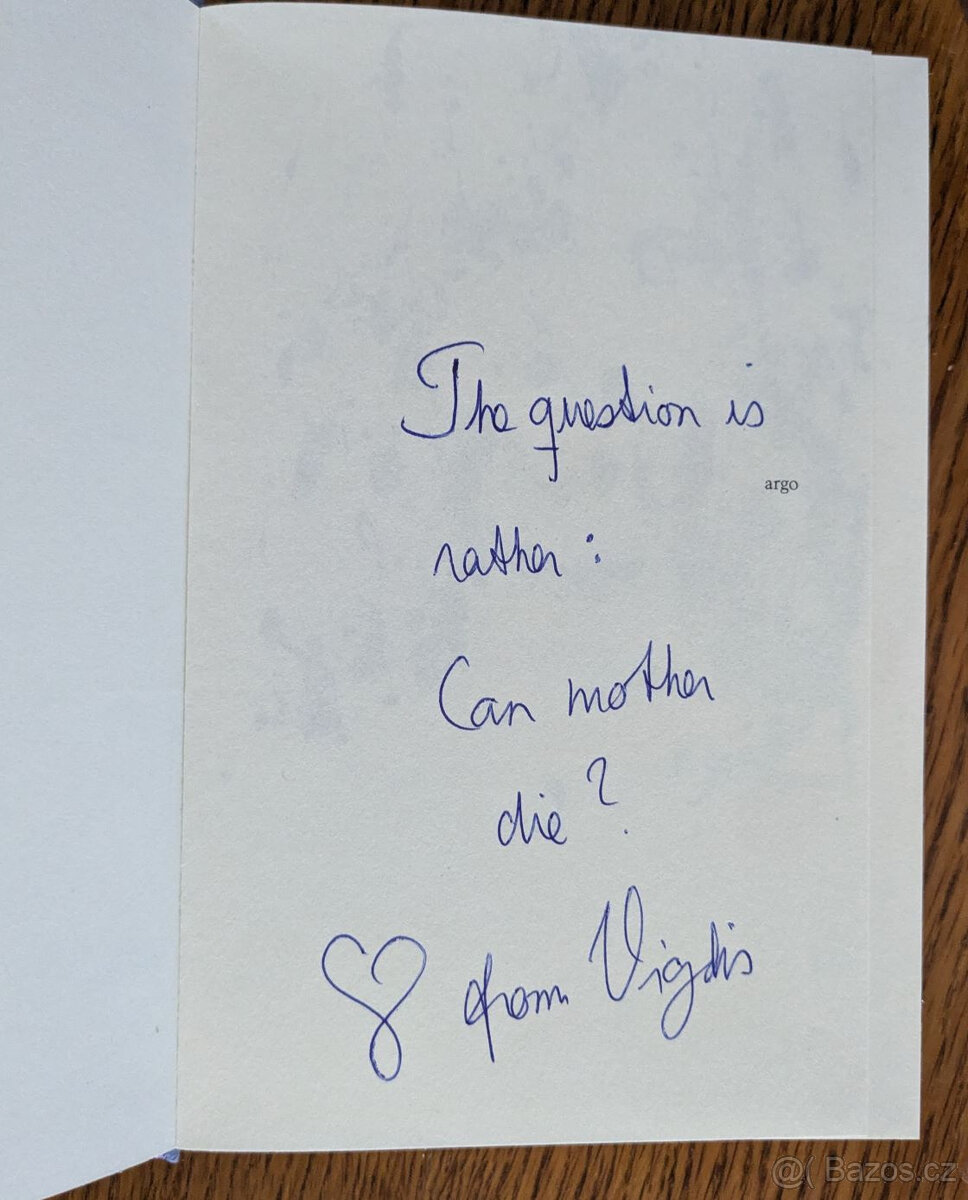 The question is
argo
rather:
Can mother
die?
from Vigdis
@( Bazos.cz